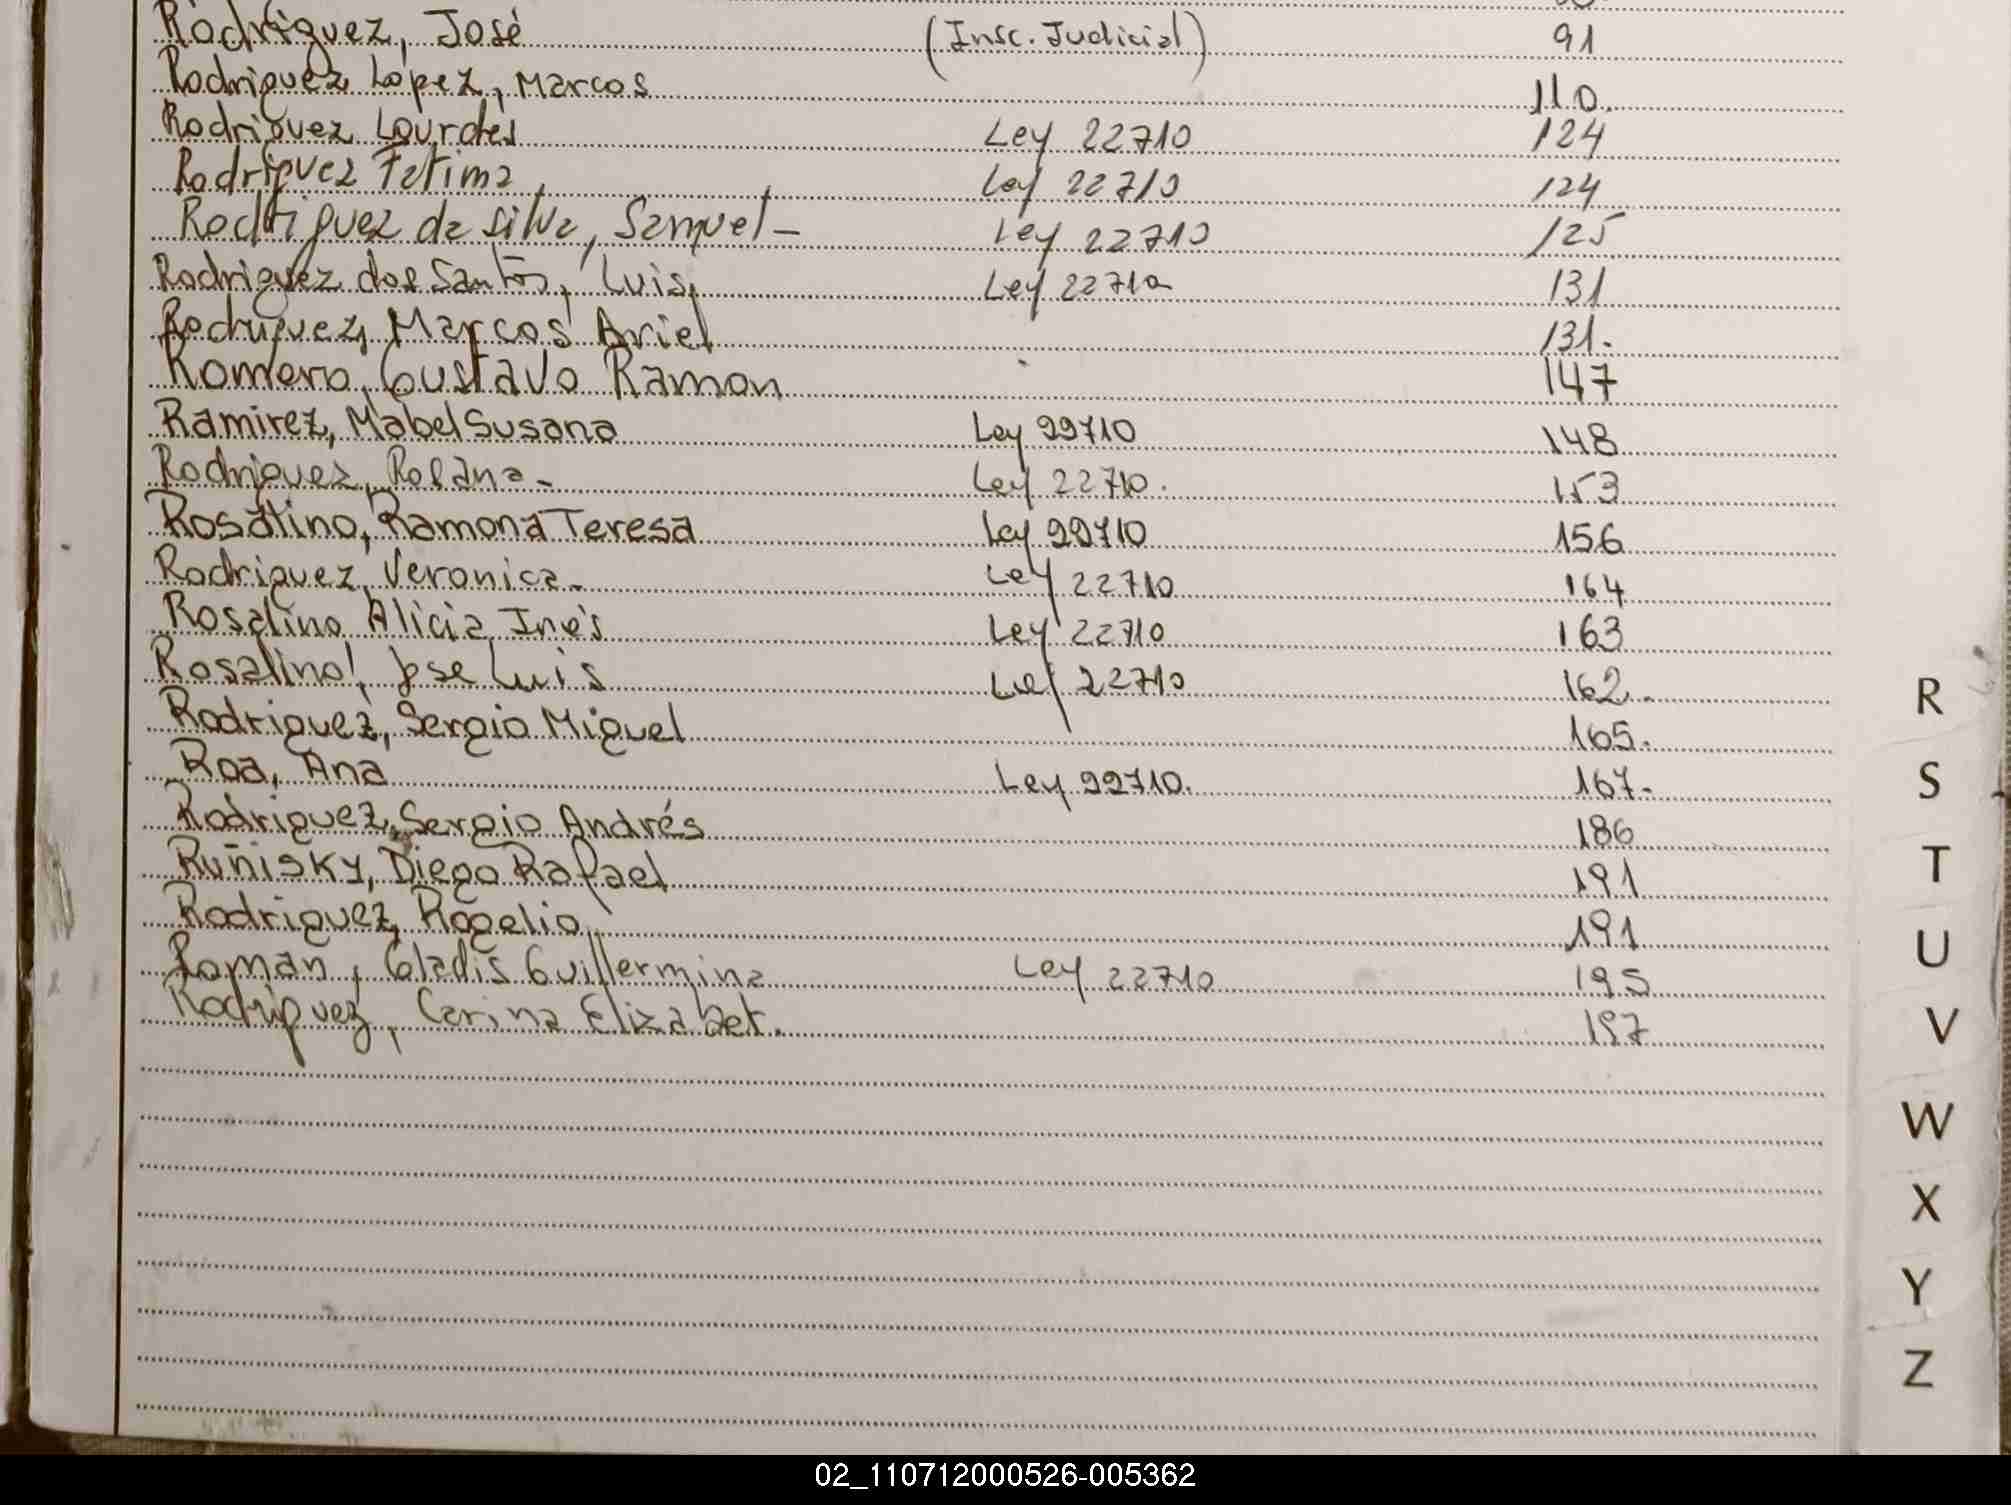 Rodriguez, José (Insc. Judicial) 91
Rodriguez López, Marcos 110.
Rodriguez Lourdes Ley 22710 124
Rodriguez Fatima Ley 22710 124
Rodriguez da silva, Samuel - Ley 22710 125
Rodriguez dos Santos, Luis Ley 22710 131
Rodriguez, Marcos Ariel 131.
Romero, Gustavo Ramon 147
Ramirez, Mabel Susana Ley 22710 148
Rodriguez, Rosana - Ley 22710. 153
Rosatino, Ramona Teresa Ley 22710 156
Rodriguez, Veronica - Ley 22710 164
Rosalino Alicia Inés Ley 22710 163
Rosalino, Jose Luis Ley 22710 162.
Rodriguez, Sergio Miguel 165.
Roa, Ana Ley 22710. 167.
Rodriguez, Sergio Andrés 186
Ruñisky, Diego Rafael 191
Rodriguez, Rogelio 191
Roman, Gladis Guillermina Ley 22710 195
Rodriguez, Carina Elizabet. 197
R
S
T
U
V
W
X
Y
Z
02_110712000526-005362